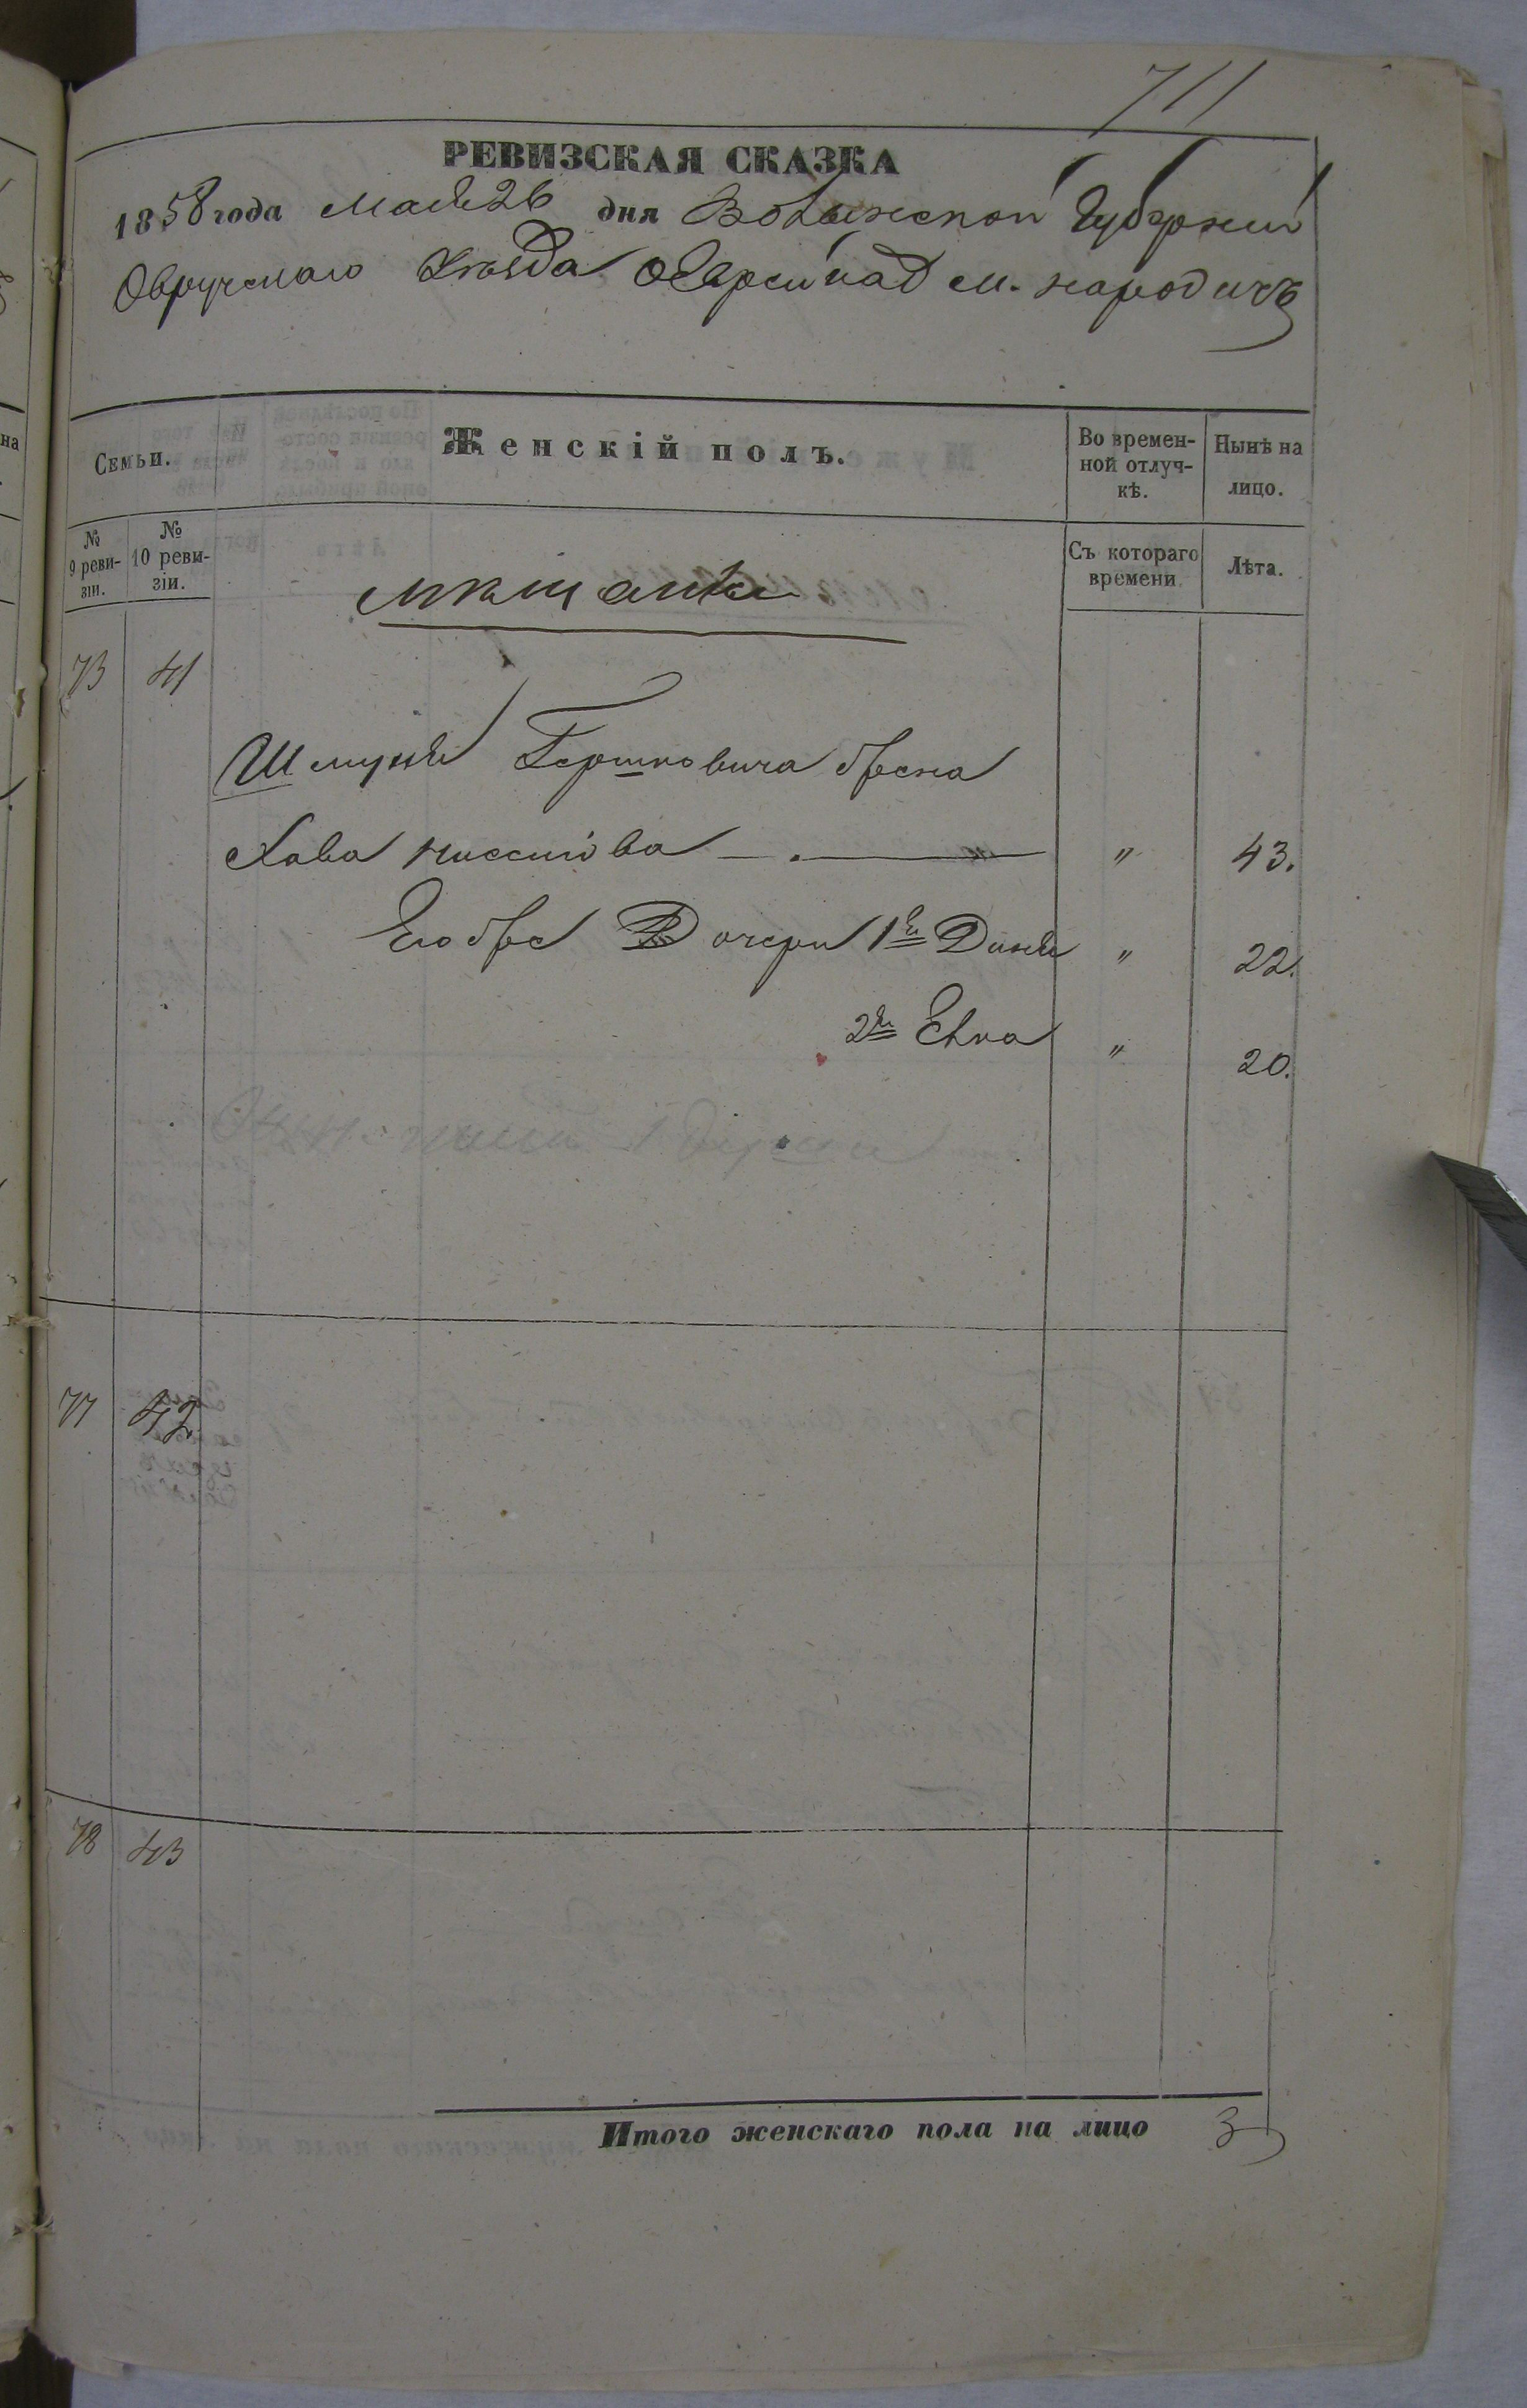 711
РЕВИЗСКАЯ СКАЗКА
1858 года Мая 26 дня Волынской Губернии
Овручскаго Уѣзда Еврей над м. народичъ
Семьи.
Женскій полъ.
Во времен-
ной отлуч-
кѣ.
Нынѣ на
лицо.
№
9 реви-
зіи.
№
10 реви-
зіи.
Съ котораго
времени
Лѣта.
мѣщанки
73 41
Шмуня Гершковича жена
Хава Ниссинова " 43.
Его же Дочери 1я Диня " 22.
2я Етка " 20.
77 42
78 43
Итого женскаго пола на лицо 3